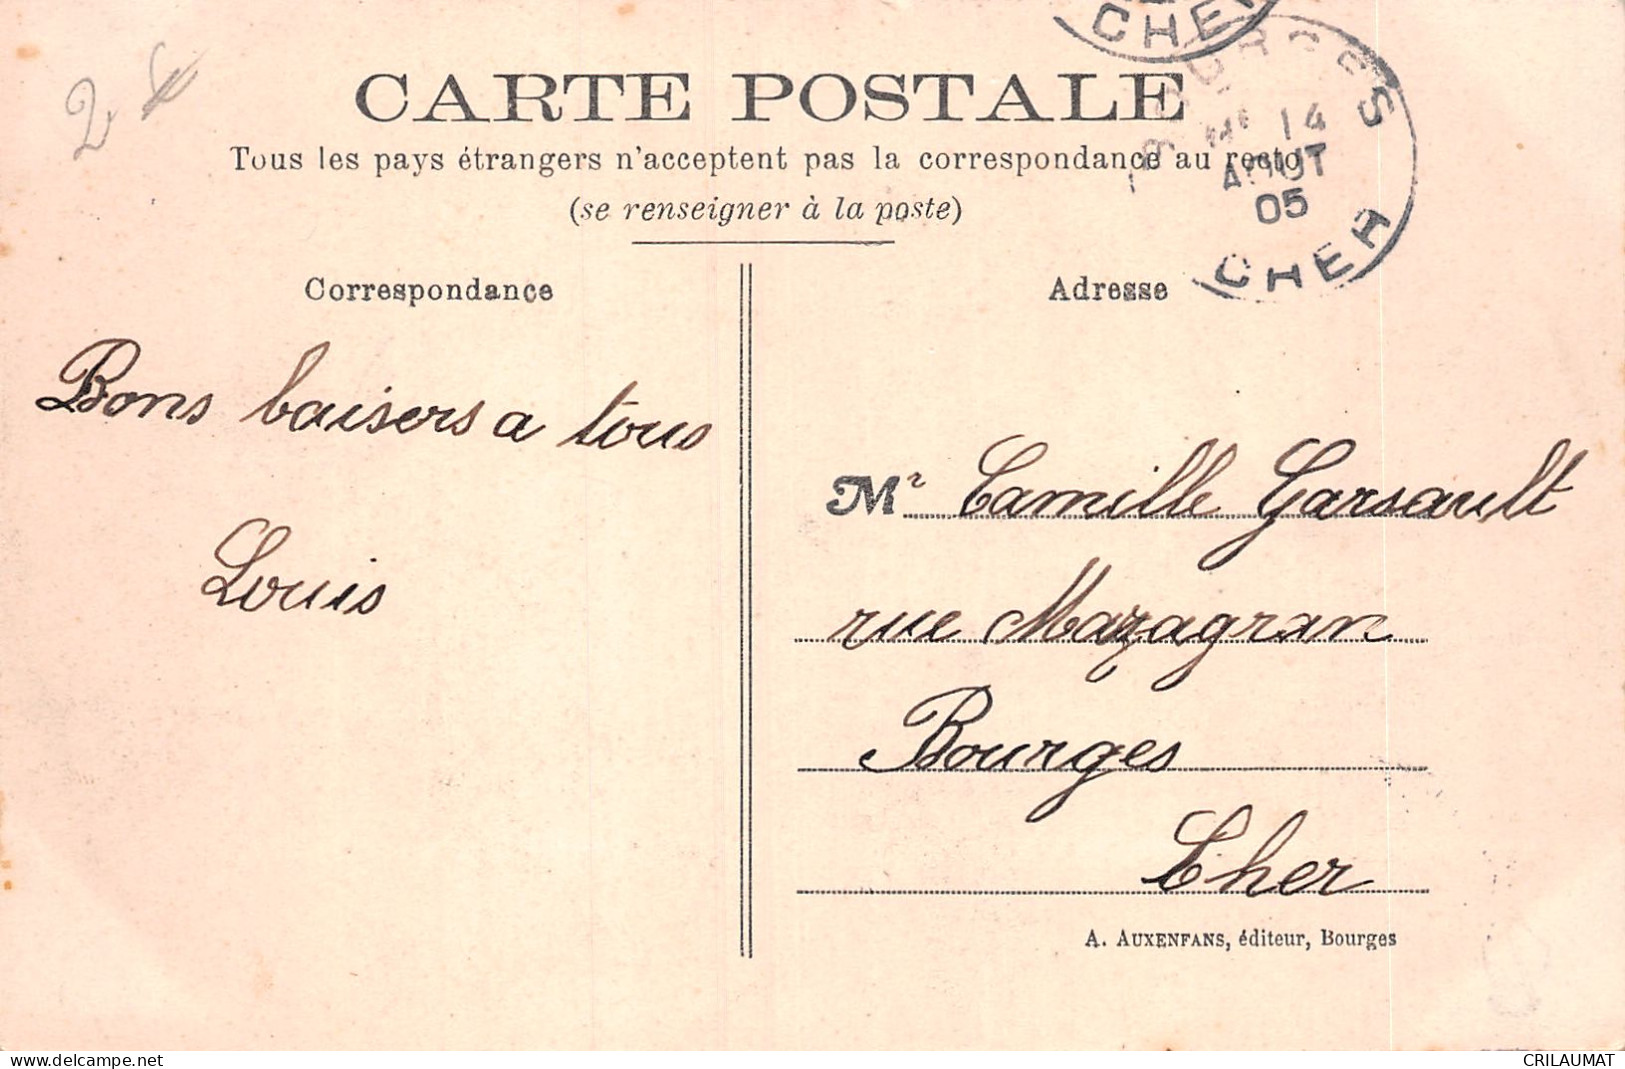 CHER
2
CARTE POSTALE
BOURGES
14
AOUT
05
CHER
Tous les pays étrangers n'acceptent pas la correspondance au recto
(se renseigner à la poste)
Correspondance
Bons baisers a tous
Louis
Adresse
Mr Camille Garsault
rue Mazagran
Bourges
Cher
A. AUXENFANS, éditeur, Bourges
www.delcampe.net
CRILAUMAT